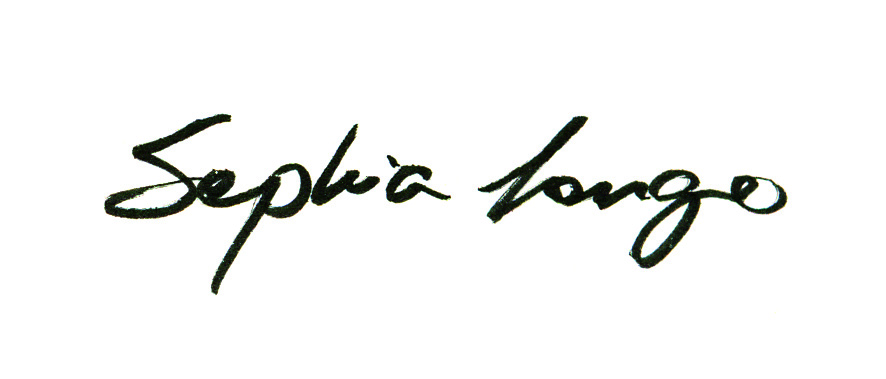 Sophia Longo